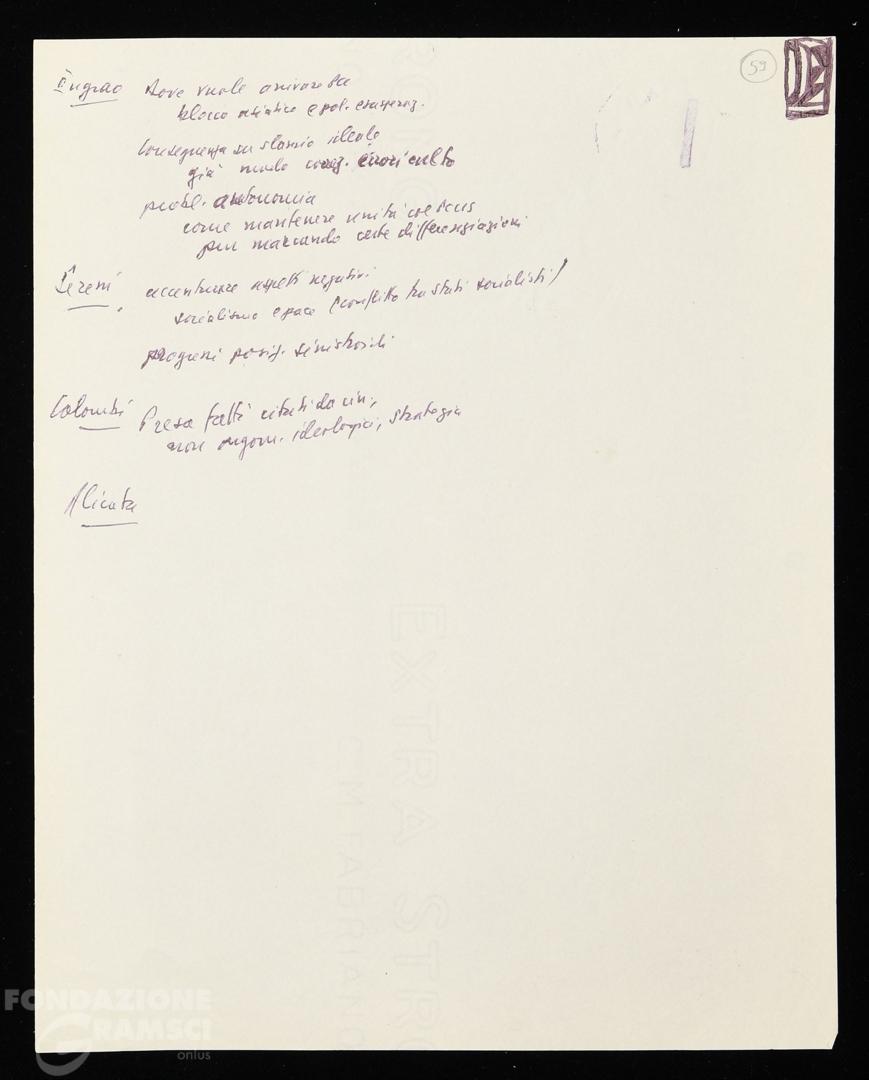 59
Ingrao Dove vuole arrivare la
blocco asiatico e pol. esasperaz.
Conseguenza su slancio ideale
già modo correz. errori culto
probl. autonomia
come mantenere unità col PCUS
pur marcando certe differenziazioni
Sereni accentuare aspetti negativi
socialismo e pace (conflitto tra stati socialisti)
progressi posiz. sinistroidi
Colombi Presa fatti citati da
non argom. ideologici, strategia
Alicata
EXTRA STRO
C.M. FABRIANO
FONDAZIONE
GRAMSCI
onlus